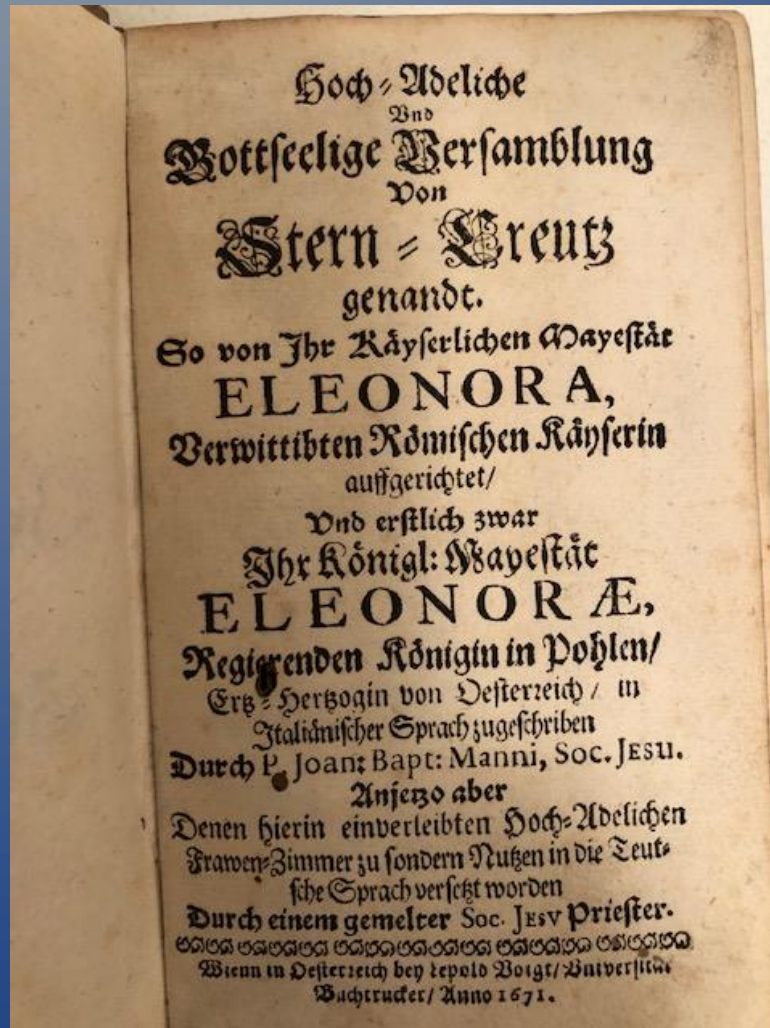 Hoch-Adeliche
Vnd
Gottseelige Versamblung
Von
Stern-Creutz
genandt.
So von Ihr Käyserlichen Mayestät
ELEONORA,
Verwittibten Römischen Käyserin
auffgerichtet/
Vnd erstlich zwar
Ihr Königl: Mayestät
ELEONORÆ,
Regierenden Königin in Pohlen/
Ertz-Hertzogin von Oesterreich / in
Italiänischer Sprach zugeschriben
Durch P. Joan: Bapt: Manni, Soc. JESU.
Anjetzo aber
Denen hierin einverleibten Hoch-Adelichen
Frawen-Zimmer zu sondern Nutzen in die Teut-
sche Sprach versetzt worden
Durch einem gemelter Soc. JESV Priester.
Wienn in Oesterreich bey Lepold Voigt/ Vniversität
Buchtrucker/ Anno 1671.